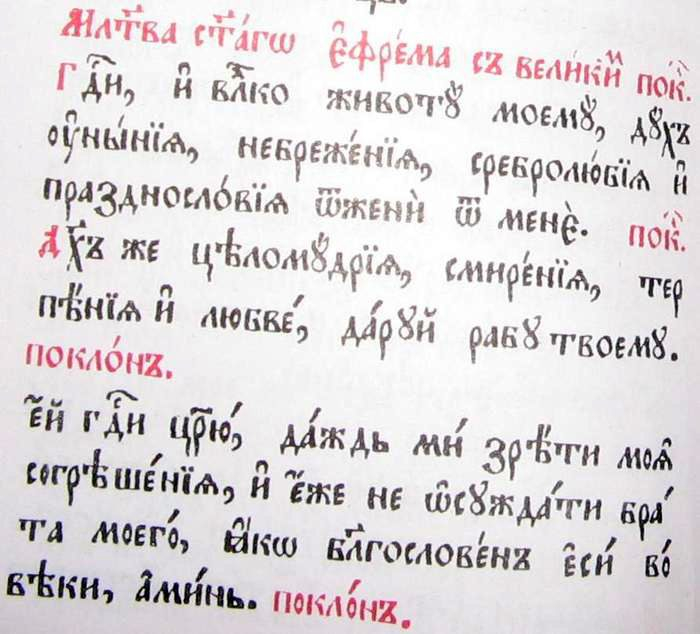 Мл҃тва ст҃а́гѡ є҆фре́ма съ вели́ки́м пок҃.
Гдⷭ҇и, и҆ влⷣко животꙋ̀ моемꙋ̀, дꙋ́хъ
оу҆ны́нїѧ, небреже́нїѧ, сребролю́бїѧ и҆
празднословїѧ ѿжени̑ ѿ менє̀. пок҃.
Дх҃ъ же цѣломꙋ́дрїѧ, смире́нїѧ, тер
пѣ́нїѧ и҆ любве́, да́рꙋй рабꙋ̀ твоемꙋ.
покло́нъ.
є҆́й гдⷭ҇и цр҃ю́, да́ждь ми́ зрѣ́ти моѧ҄
согрѣше́нїѧ, и҆ є҆́же не ѡ҆сꙋжда́ти бра́
та моего́, ꙗ҆́кѡ бл҃гослове́нъ є҆си́ во́
вѣки, а҆ми́нь. покло́нъ.